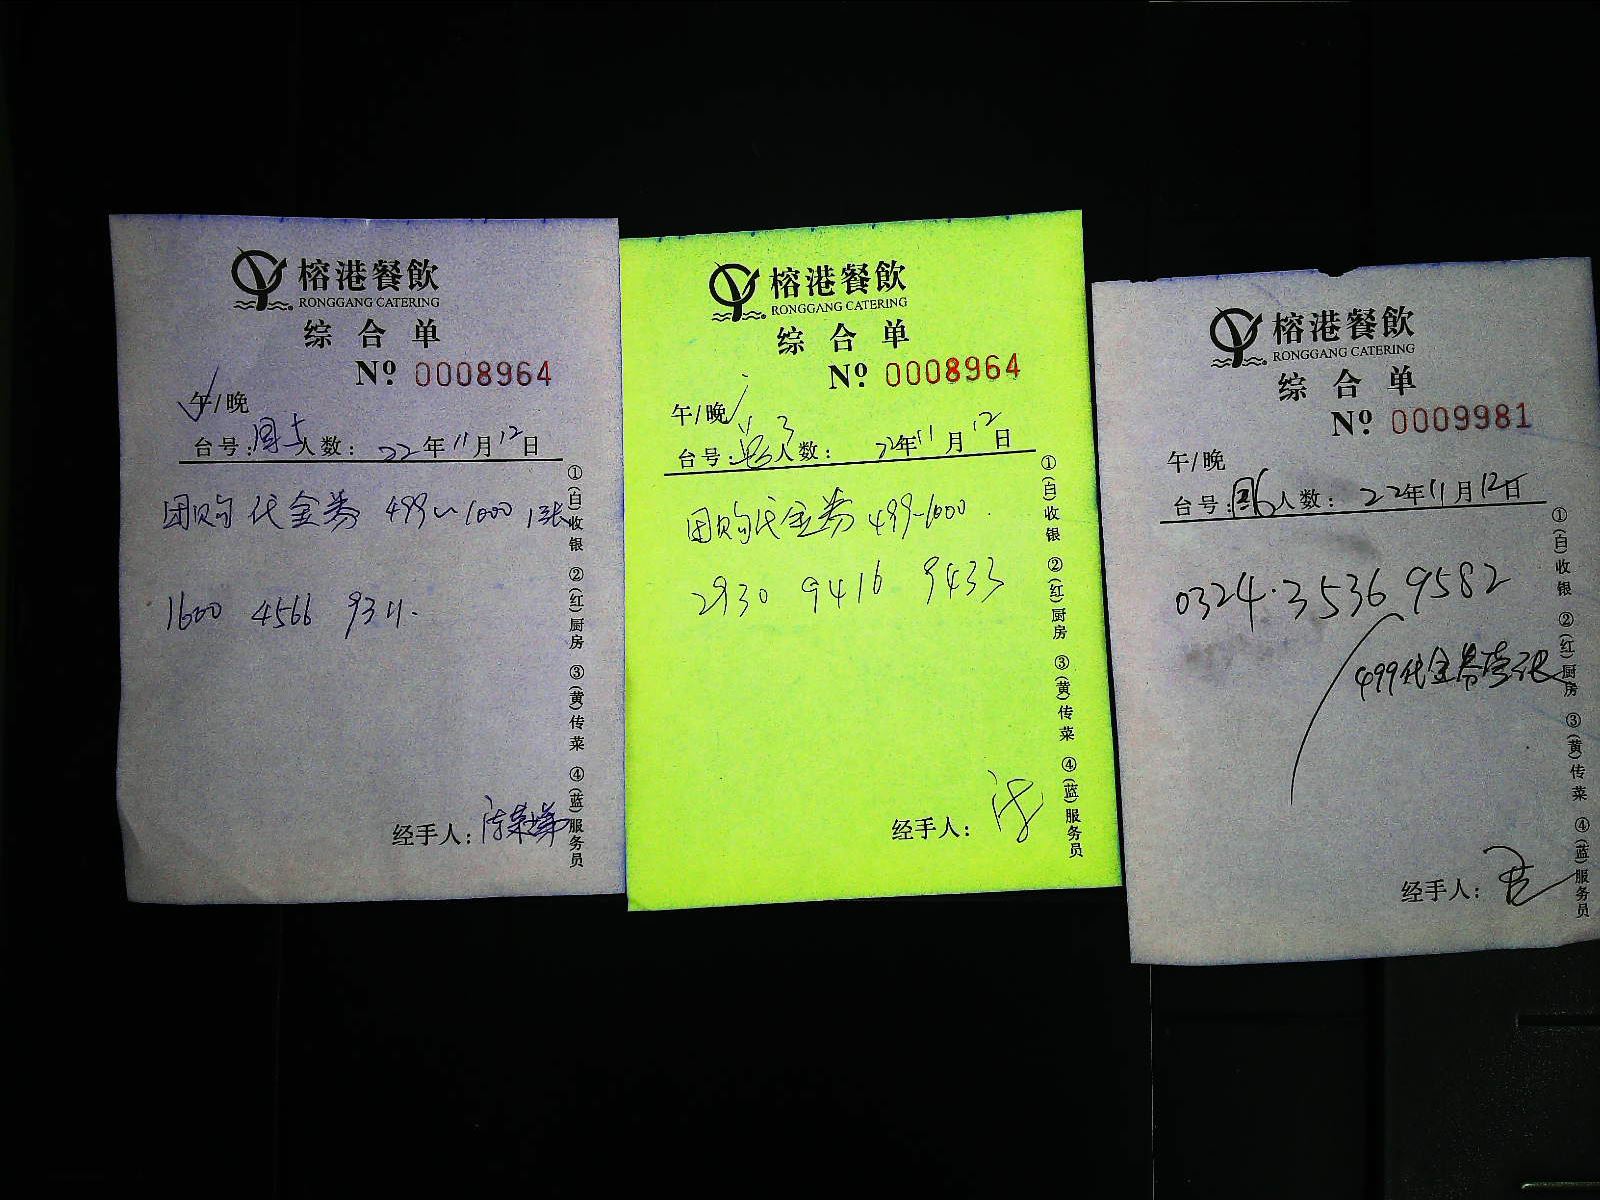 榕港餐飲
RONGGANG CATERING
综合单
Nº 0008964
午/晚
台号: 人数: 22年11月12日
团购代金券 499~1000 1张
1600 4566 9311.
经手人:
①(白)收银 ②(红)厨房 ③(黄)传菜 ④(蓝)服务员
榕港餐飲
RONGGANG CATERING
综合单
Nº 0008964
午/晚
台号: 人数: 22年11月12日
团购代金券 499~1000.
2930 9416 9433
经手人:
①(白)收银 ②(红)厨房 ③(黄)传菜 ④(蓝)服务员
榕港餐飲
RONGGANG CATERING
综合单
Nº 0009981
午/晚
台号: 人数: 22年11月12日
0324·3536 9582
499代金券壹张
经手人:
①(白)收银 ②(红)厨房 ③(黄)传菜 ④(蓝)服务员